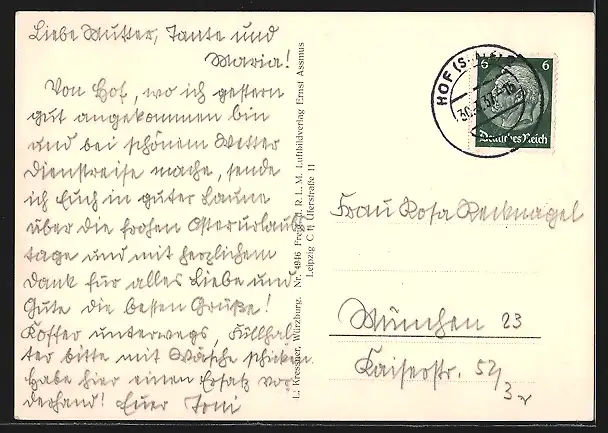 Liebe Mutter, Tante und
Maria!
Von Hof, wo ich gestern
gut angekommen bin
und bei schönem Wetter
Dienstreise mache, sende
ich Euch in guter Laune
über die frohen Osterurlaubs
tage und mit herzlichem
Dank für alles Liebe und
Gute die besten Grüße!
Koffer unterwegs, Füllhal
ter bitte mit Wäsche schicken
habe hier einen Ersatz vor
derhand! Euer Toni
L. Kressner, Würzburg. Nr. 4946 Freig. d. R. L. M. Luftbildverlag Ernst Assmus
Leipzig C 1 Uferstraße 11
HOF (SAALE)
6 6
Deutsches Reich
Frau Rosa Recknagel
München 23
Kaiserstr. 52/3 r